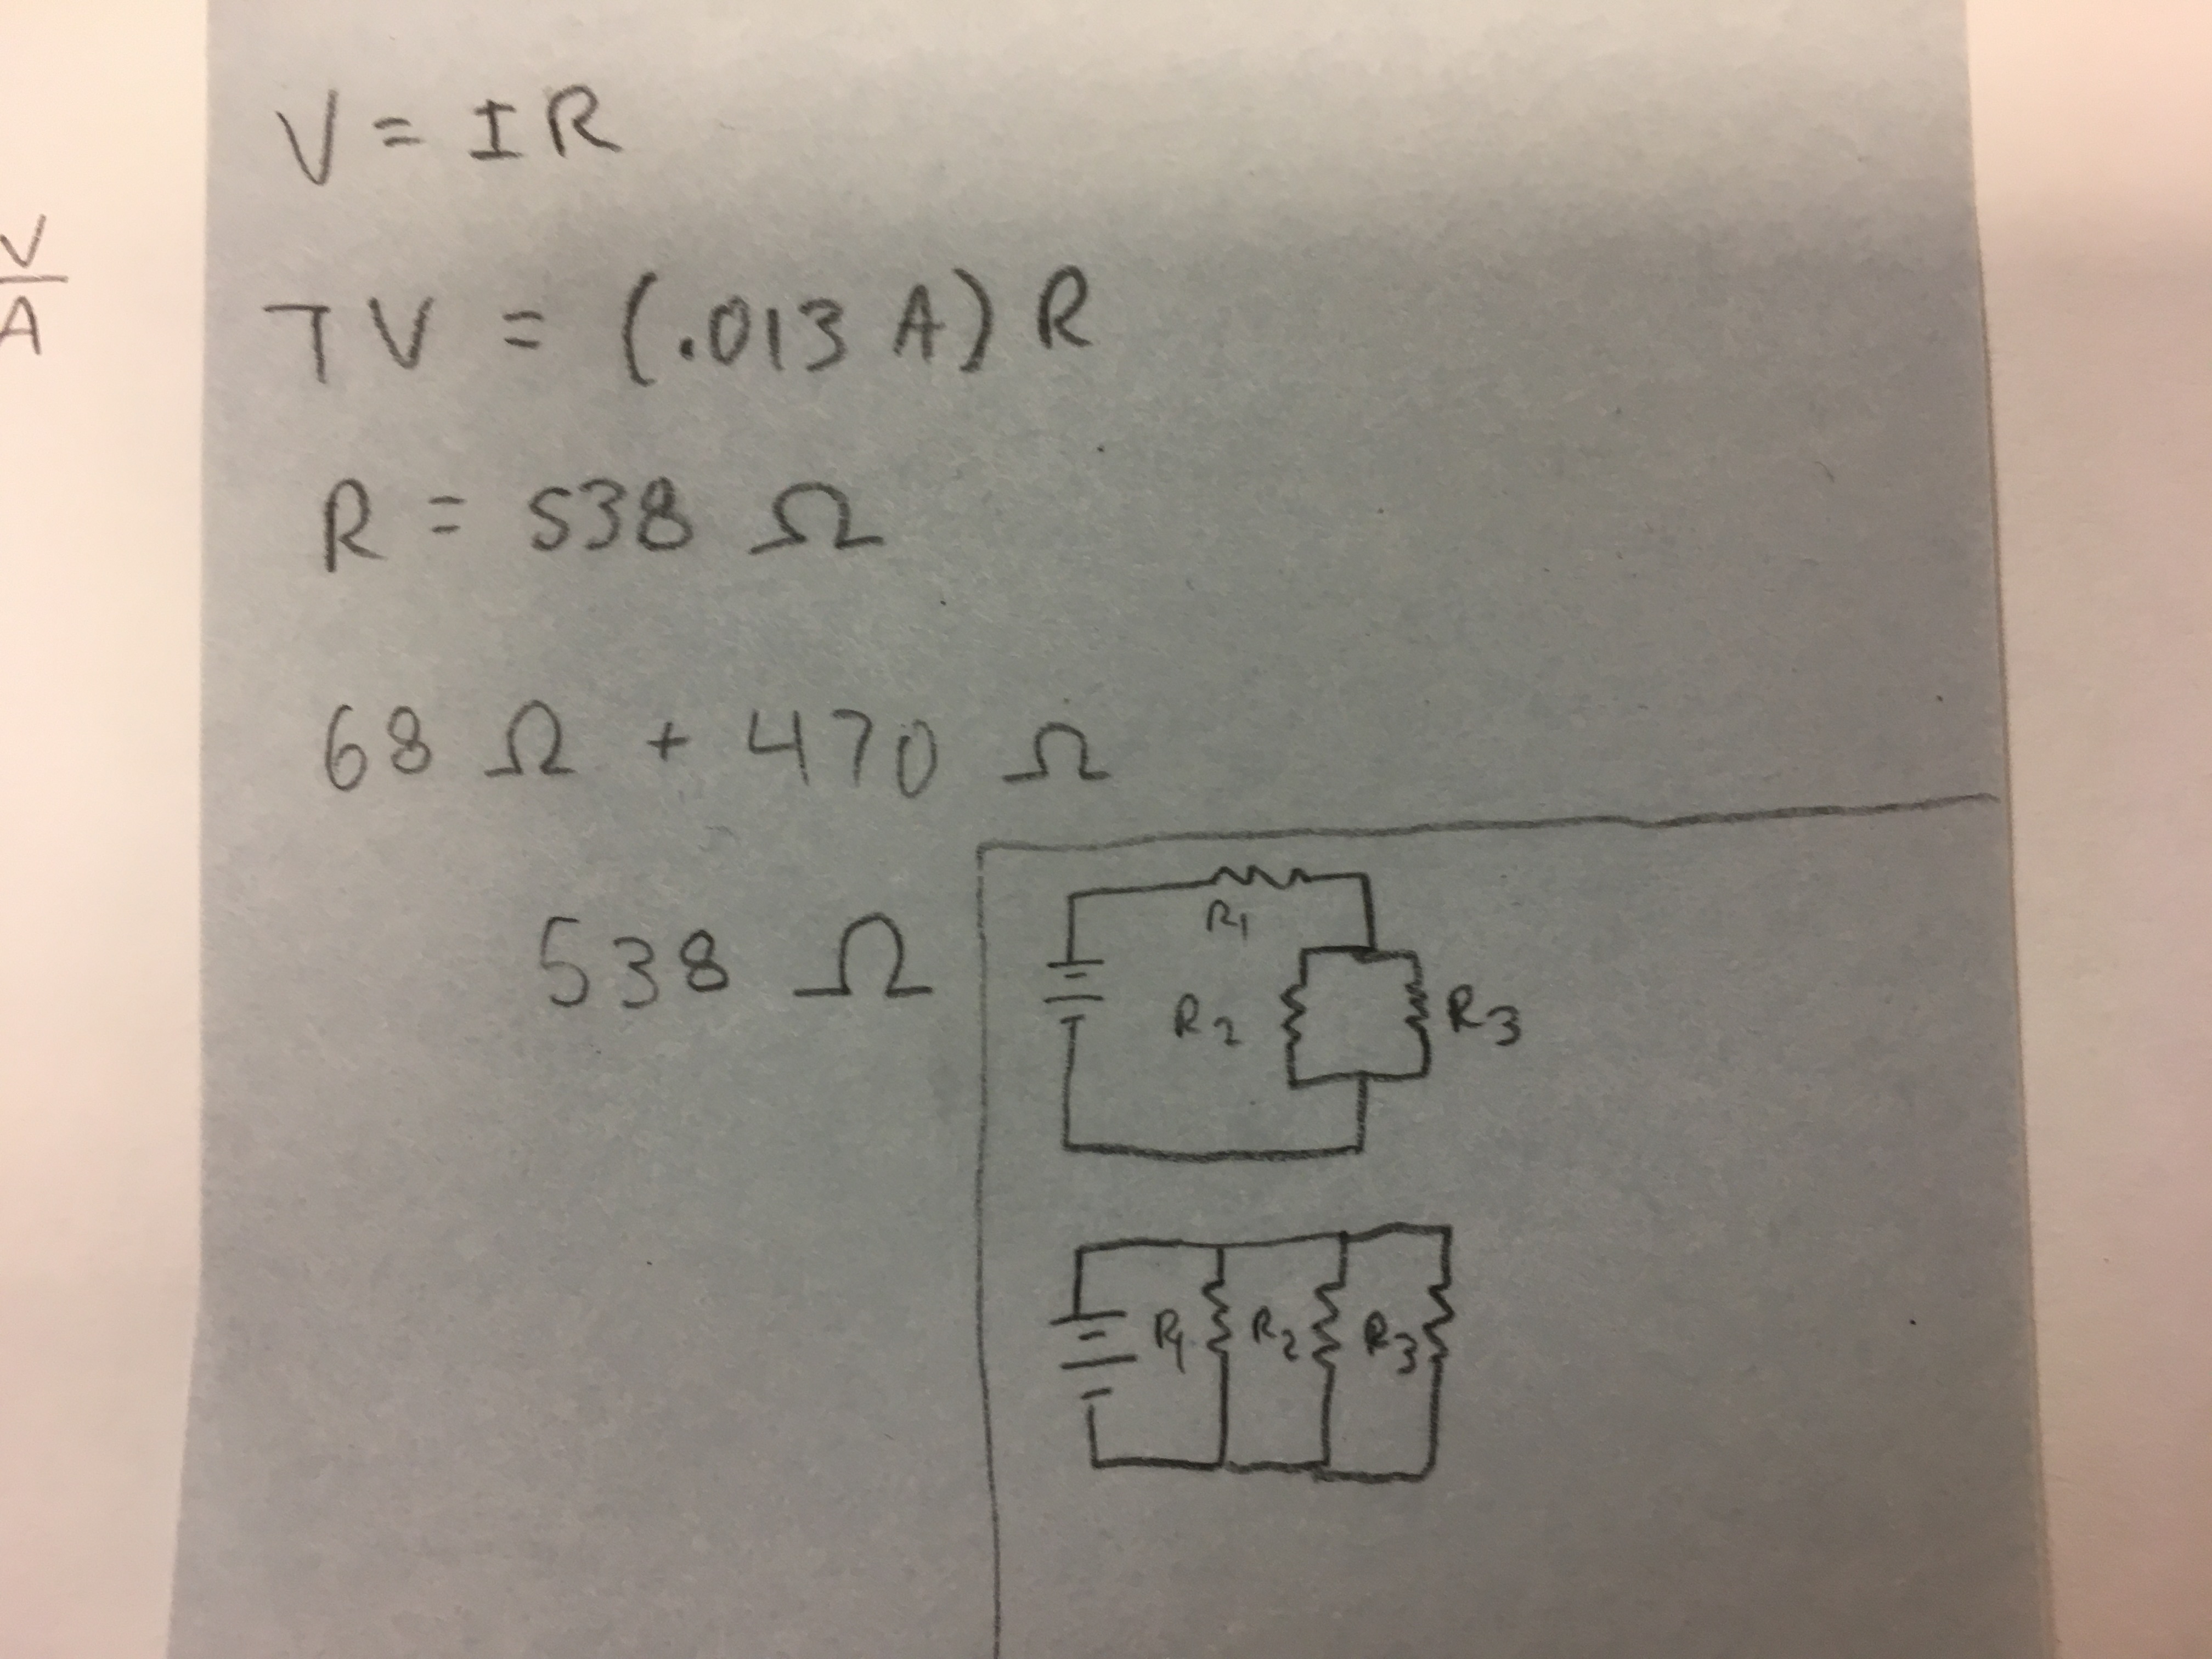 V
A
V = IR
7 V = (.013 A) R
R = 538 Ω
68 Ω + 470 Ω
538 Ω
R1
R2
R3
R1
R2
R3